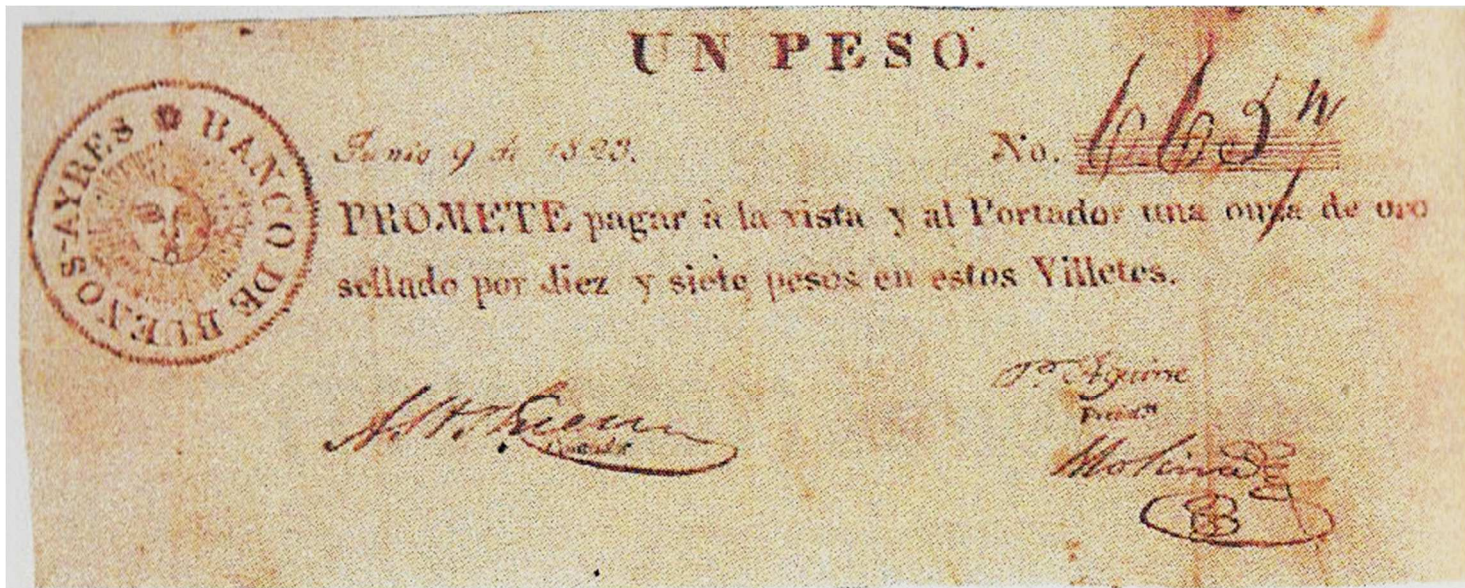 UN PESO.
BANCO DE BUENOS-AYRES
Junio 9 de 1823.
No.
PROMETE pagar à la vista y al Portador una onza de oro
sellado por diez y siete pesos en estos Villetes.
Aguirre
Molina